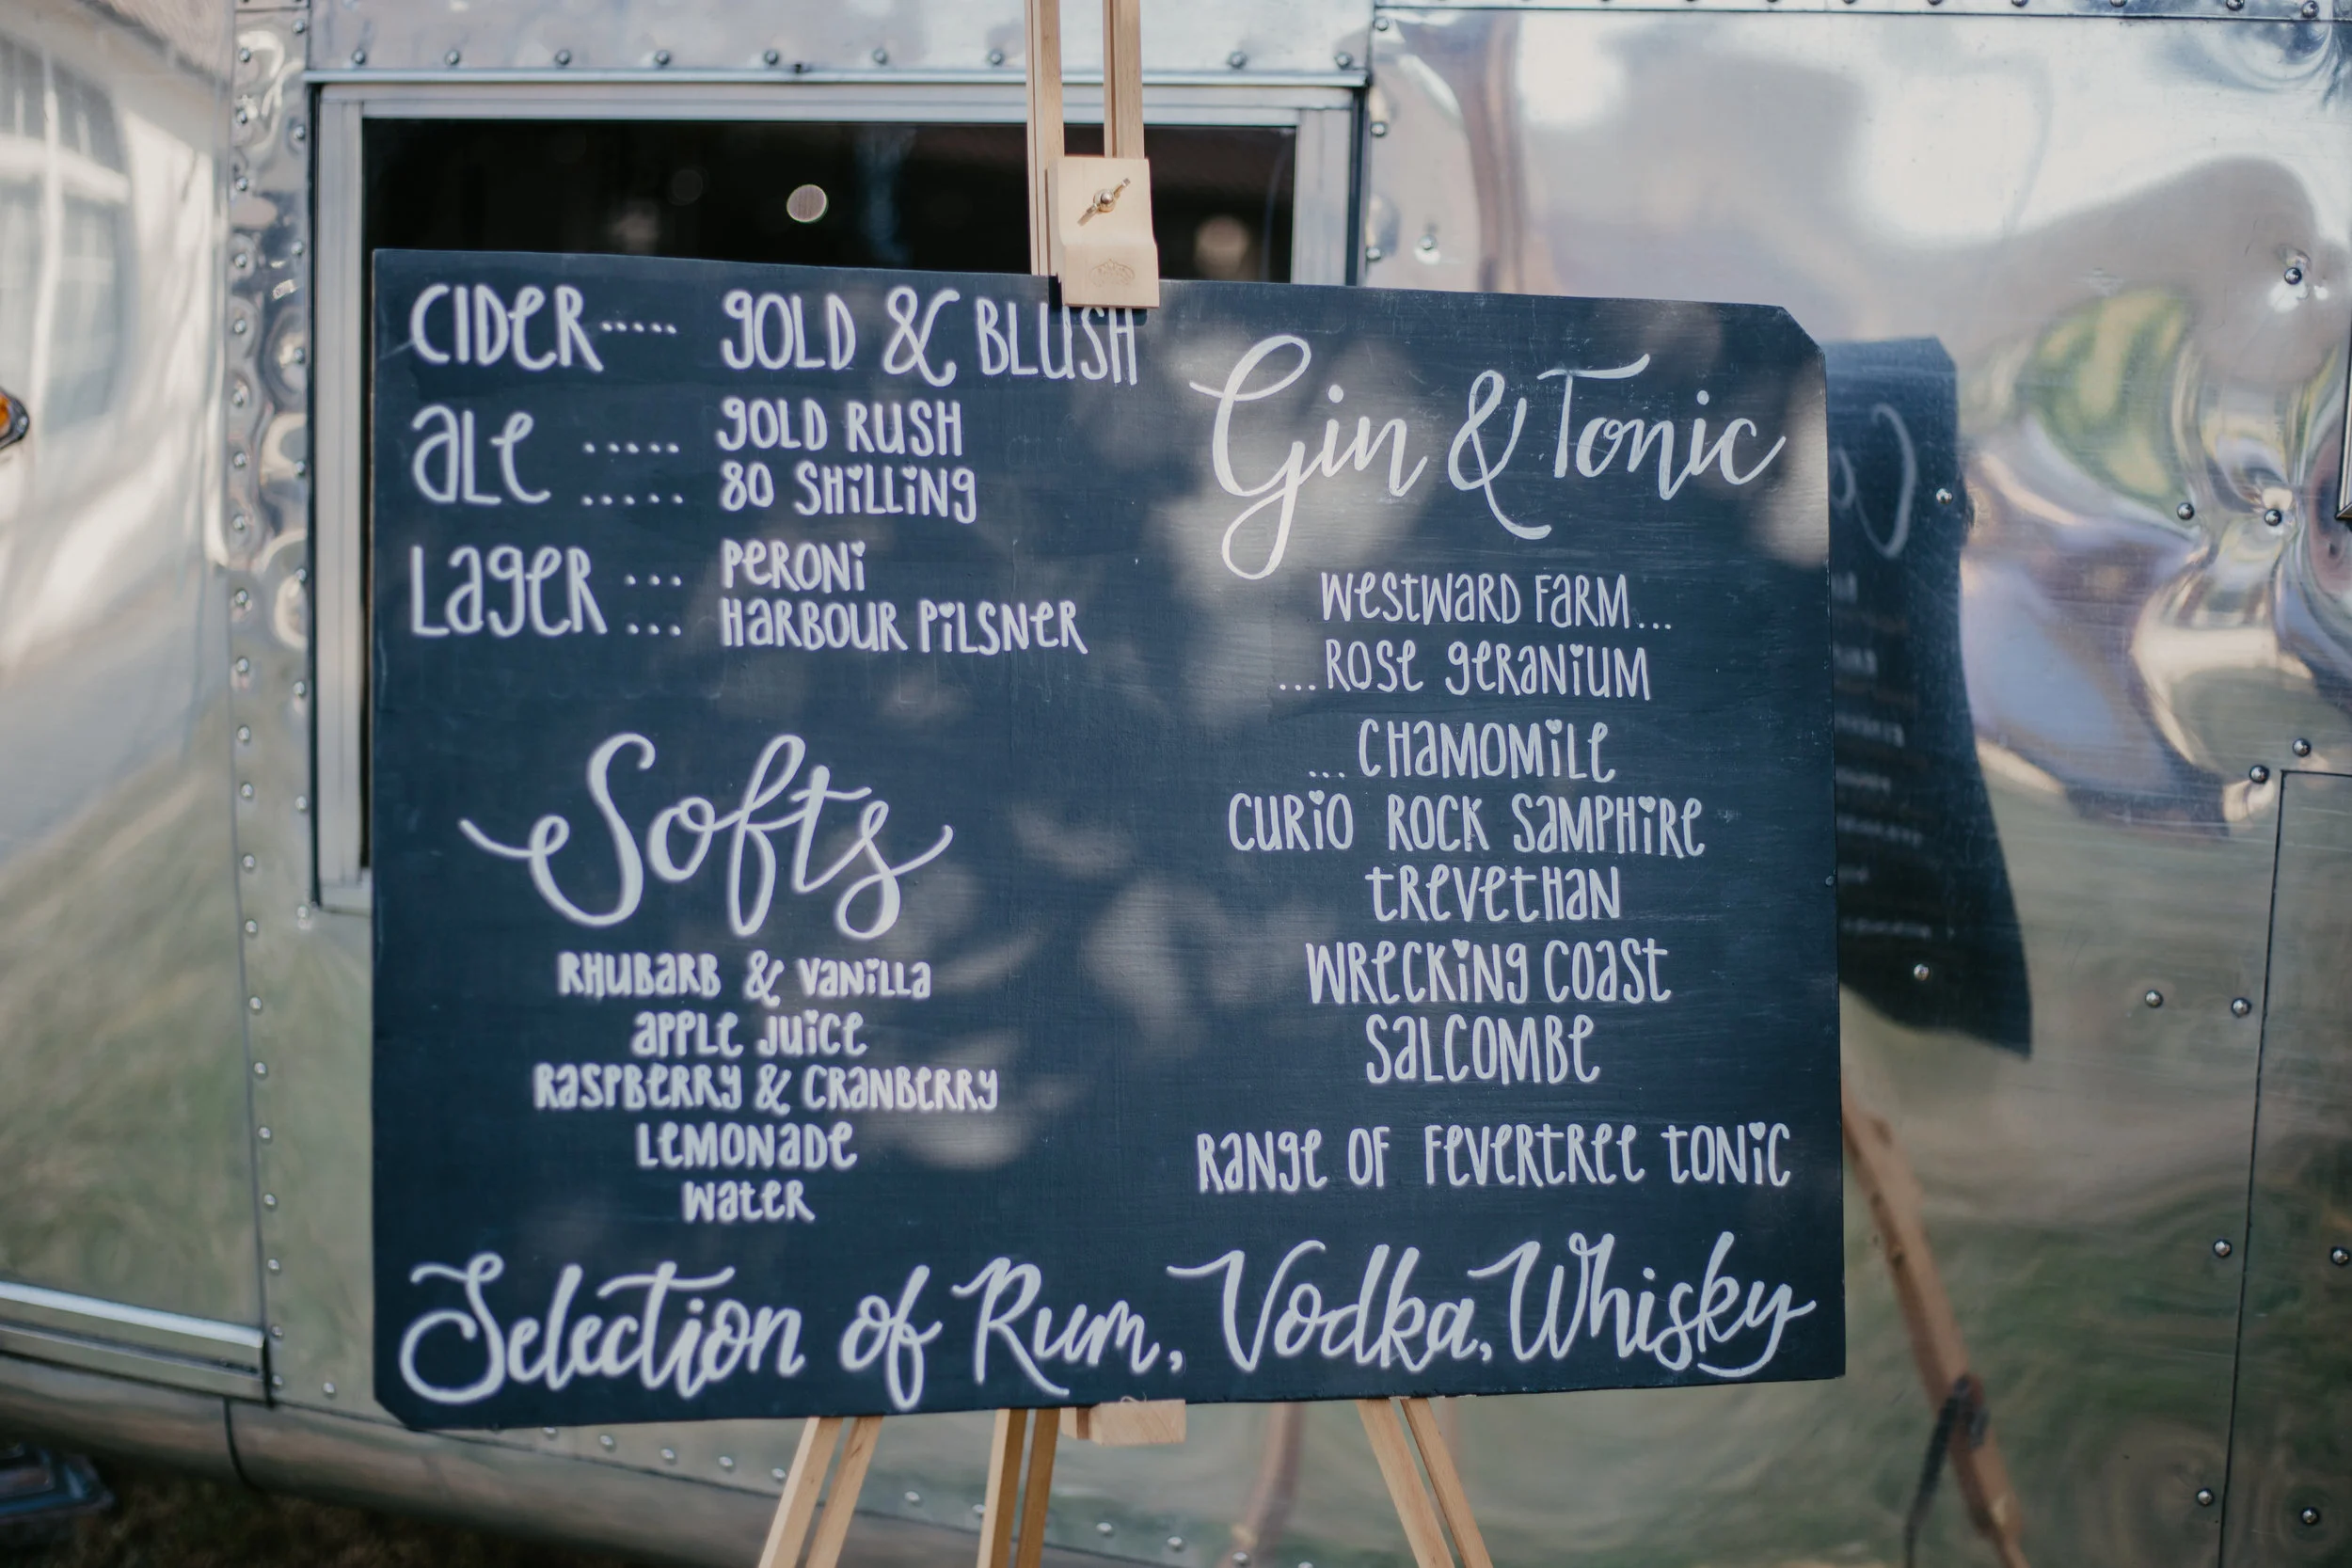 CIDER..... GOLD & BLUSH
ALE ..... GOLD RUSH
..... 80 SHILLING
LAGER ... PERONI
... HARBOUR PILSNER
Softs
RHUBARB & VANILLA
APPLE JUICE
RASPBERRY & CRANBERRY
LEMONADE
WATER
Gin & Tonic
WESTWARD FARM...
...ROSE GERANIUM
...CHAMOMILE
CURIO ROCK SAMPHIRE
TREVETHAN
WRECKING COAST
SALCOMBE
RANGE OF FEVERTREE TONIC
Selection of Rum, Vodka, Whisky